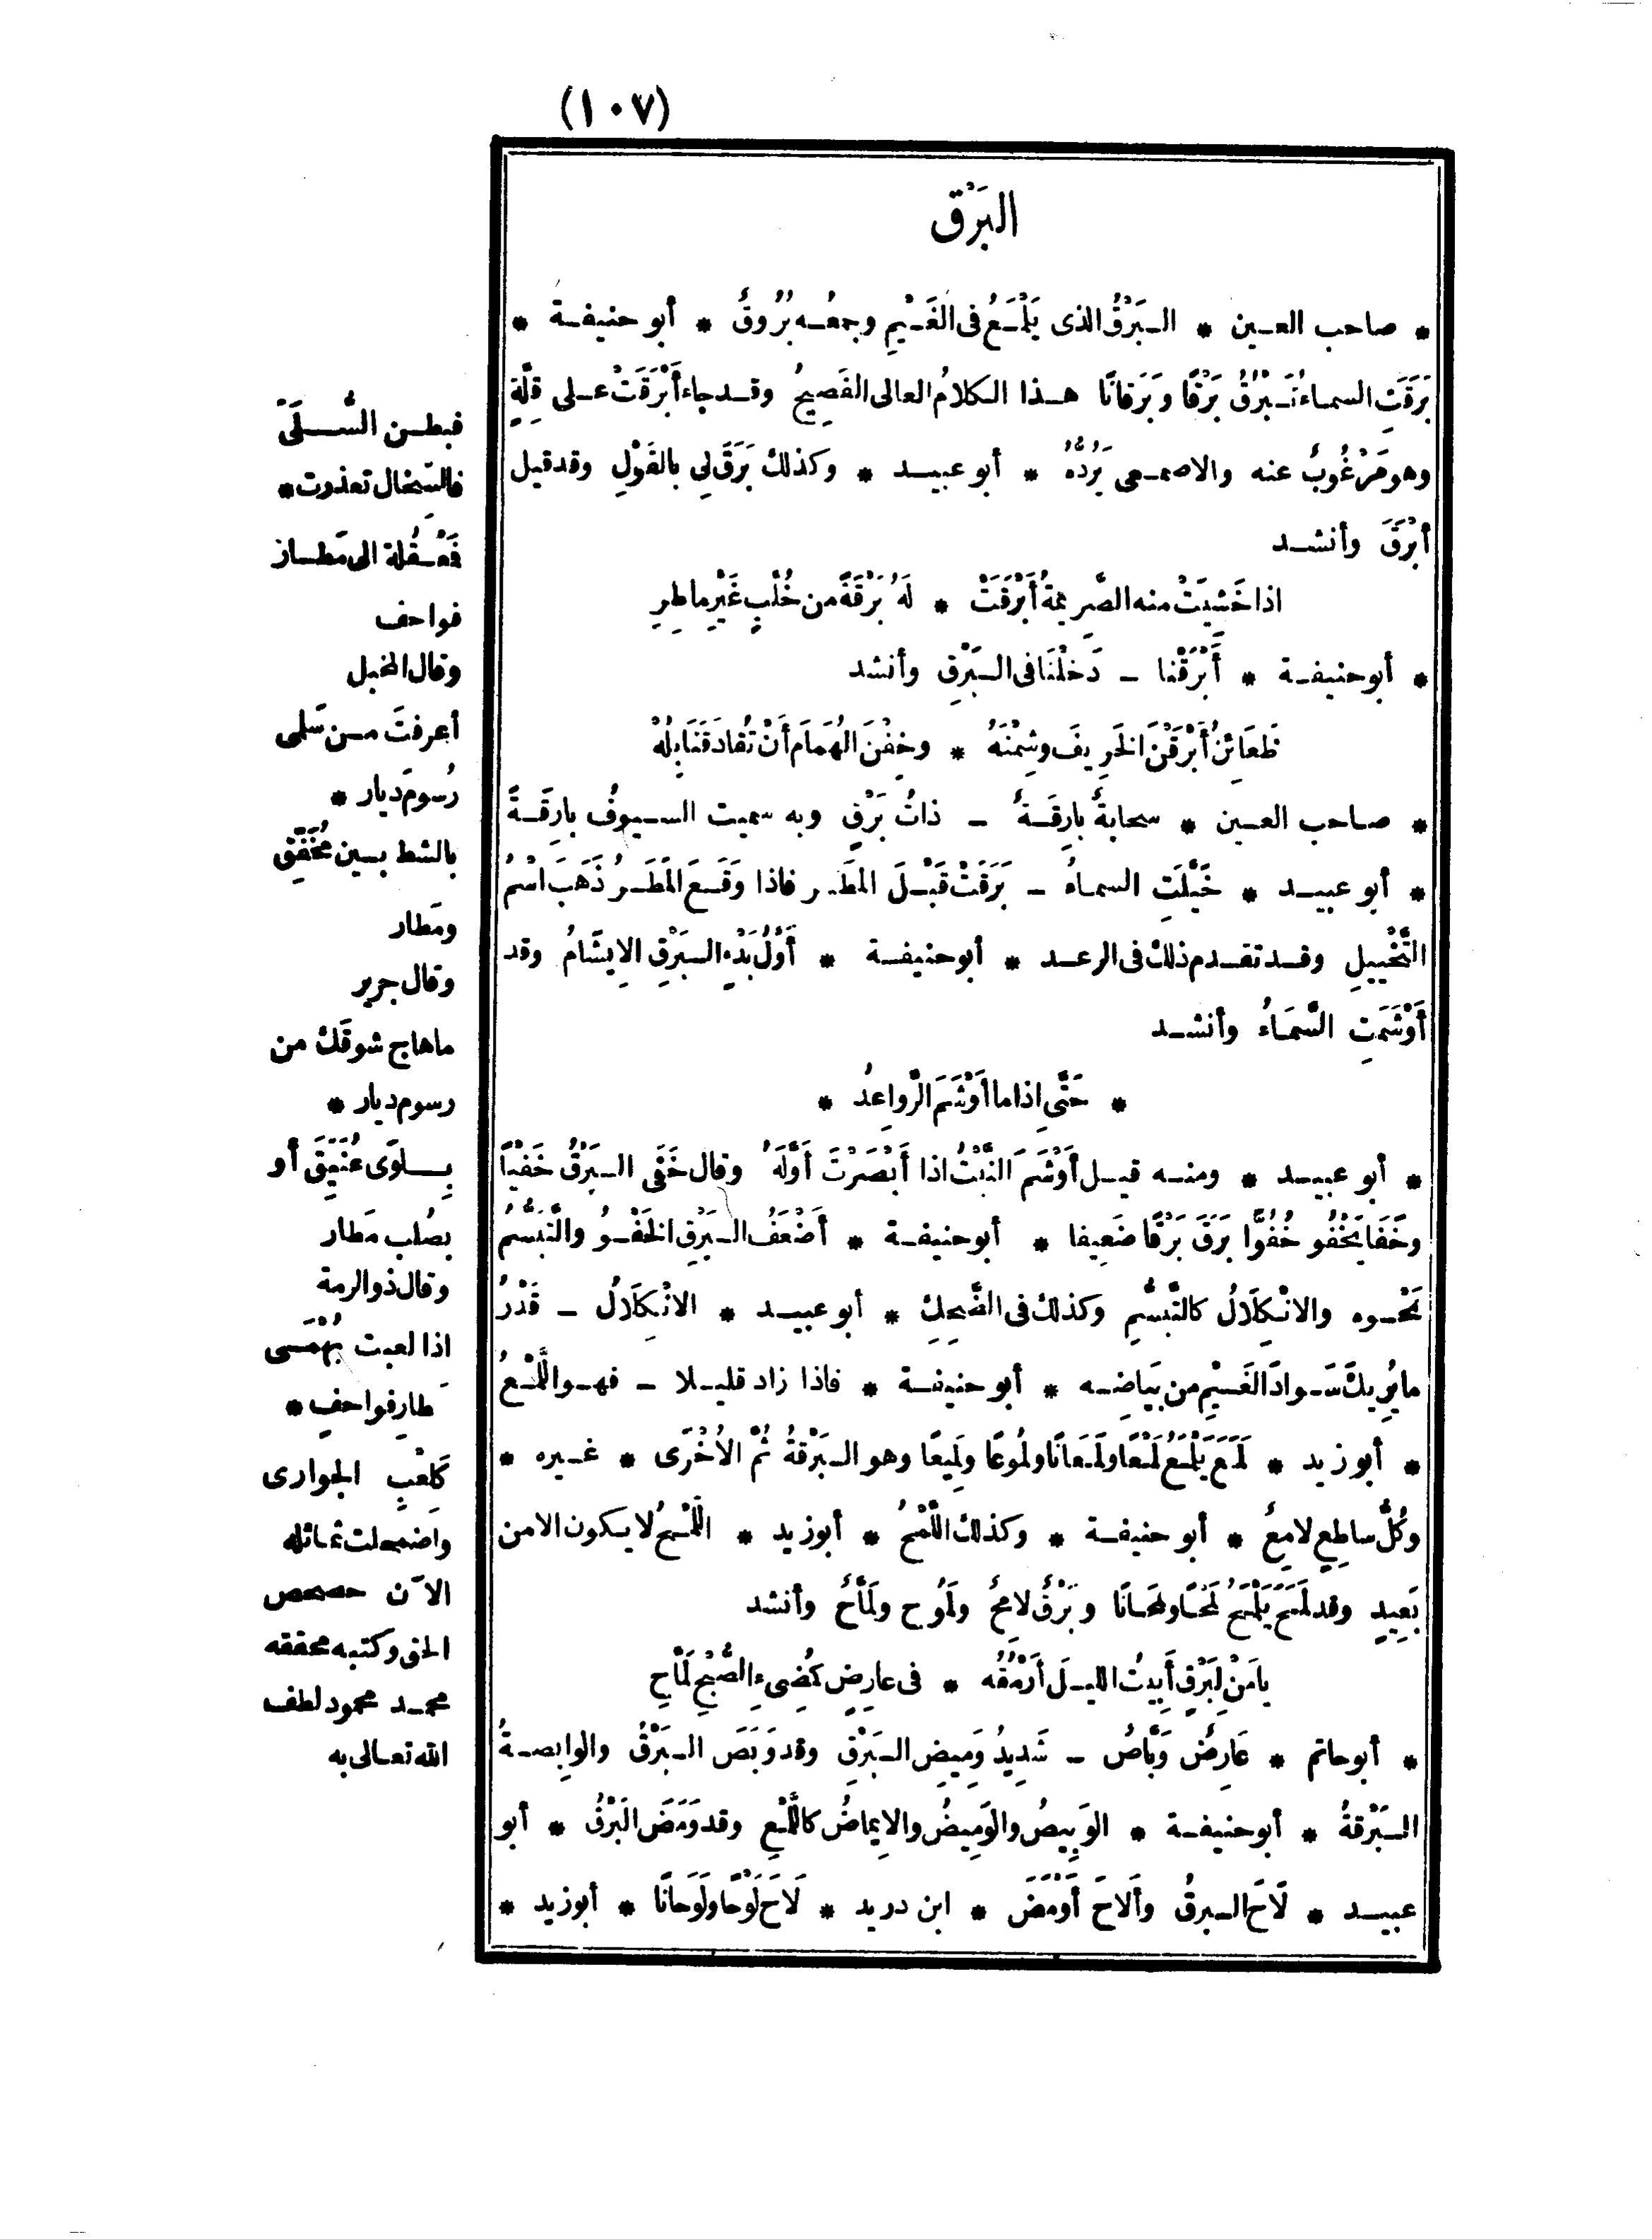 (١٠٧)
البَرْق
* صاحب العين * البَرْقُ الذى يَلْمَعُ فى الغَيْمِ وجمعُه بُرُوقٌ * أبو حنيفة *
بَرَقَتِ السماءُ تَبْرُقُ بَرْقًا وبَرَقانًا هذا الكلامُ العالى الفَصِيحُ وقد جاء أَبْرَقَتْ على قِلَّةٍ
وهو مَرْغُوبٌ عنه والاصمعى يَرُدُّهُ * أبو عبيد * وكذلك بَرَقَ لِى بالقَوْلِ وقد قيل
أَبْرَقَ وأنشد
اذا خَشِيَتْ منه الصَّرِيمةُ أَبْرَقَتْ * لَهُ بَرْقَةً من خُلَّبٍ غَيْرِ ماطِرِ
* أبو حنيفة * أَبْرَقْنا - دَخلْنَا فى البَرْقِ وأنشد
ظَعَائِنُ أَبْرَقْنَ الخَرِيفَ وشِمْنَهُ * وخِفْنَ الهُمَامَ أَنْ تُقادَ قَنَابِلُهْ
* صاحب العين * سحابةٌ بارِقَةٌ - ذاتُ بَرْقٍ وبه سميت السيوفُ بارِقَةً
* أبو عبيد * خَيَّلَتِ السماءُ - بَرَقَتْ قَبْلَ المَطَر فاذا وَقَعَ المَطَرُ ذَهَبَ اسْمُ
التَّخْيِيلِ وقد تقدم ذلك فى الرعد * أبو حنيفة * أَوَّلُ بَدْءِ البَرْقِ الِايِشَامُ وقد
أَوْشَمَتِ السَّمَاءُ وأنشد
* حَتَّى اذا ما أَوْشَمَ الرَّواعِدُ *
* أبو عبيد * ومنه قيل أَوْشَمَ النَّبْتُ اذا أَبْصَرْتَ أَوَّلَهُ وقال خَفَى البَرْقُ خَفْيًا
وخَفَا يَخْفُو خُفُوًّا بَرَقَ بَرْقًا ضَعِيفا * أبو حنيفة * أَضْعَفُ البَرْقِ الخَفْوُ والتَّبَسُّمُ
نَحْوه والانْكِلَالُ كالتَّبسُّمِ وكذلك فى الضَّحِكِ * أبو عبيد * الانْكِلَالُ - قَدْرُ
ما يُرِيكَ سَوادَ الغَيْمِ من بَيَاضِه * أبو حنيفة * فاذا زاد قليلا - فهو اللَّمْعُ
* أبو زيد * لَمَعَ يَلْمَعُ لَمْعًا ولَمَعَانًا ولُمُوعًا ولَمِيعًا وهو البَرْقةُ ثُمَّ الأُخْرَى * غيره *
وكُلُّ ساطِعٍ لامِعٌ * أبو حنيفة * وكذلك اللَّمْحُ * أبو زيد * اللَّمْحُ لا يكون الا من
بَعِيدٍ وقد لَمَحَ يَلْمَحُ لَمْحًا ولَمَحَانًا وبَرْقٌ لامِحٌ ولَمُوح ولَمَّاحٌ وأنشد
يا مَنْ لِبَرْقٍ أَبِيتُ الليلَ أَرْمُقُه * فى عارِضٍ كمُضِىءِ الصُّبْحِ لَمَّاحِ
* أبو حاتم * عَارِضٌ وَبَّاصٌ - شَدِيدُ وَمِيضِ البَرْقِ وقد وَبَصَ البَرْقُ والوابِصةُ
البَرْقةُ * أبو حنيفة * الوَبِيصُ والوَمِيضُ والاِيماضُ كاللَّمْعِ وقد وَمَضَ البَرْقُ * أبو
عبيد * لَاحَ البرقُ وأَلاحَ أَوْمَضَ * ابن دريد * لَاحَ لَوْحًا ولَوَحانًا * أبو زيد *
فبطن السُّلَىّ
فالسِّخال تعذرت *
فَمَعْقُلة الى مَطار
فواحف
وقال المخبل
أعرفتَ من سَلمى
رُسومَ ديار *
بالشط بين مُخَفِّقٍ
ومَطار
وقال جرير
ما هاج شوقَك من
رسوم ديار *
بِلوَى عُنَيِّقَ أو
بصُلب مَطار
وقال ذو الرمة
اذا لعبت بُهْمَى
مَطارِ فواحفٍ *
كَلعْبِ الجوارى
واضمحلت ثمائله
الآن حصحص
الحق وكتبه محققه
محمد محمود لطف
الله تعالى به